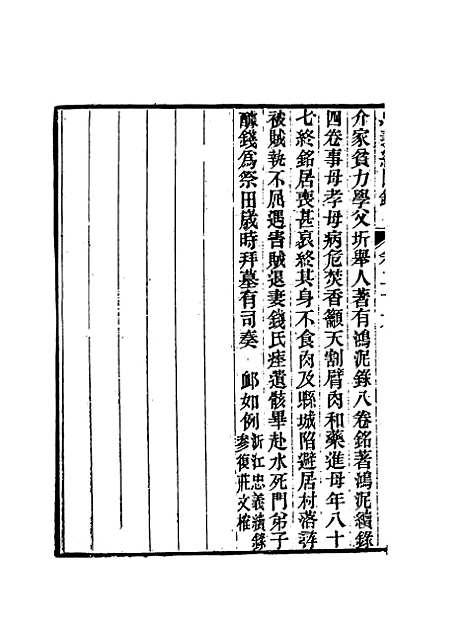 介家貧力學父圻舉人著有鴻泥錄八卷銘著鴻泥續錄
四卷事母孝母病危焚香籲天割臂肉和藥進母年八十
七終銘居喪甚哀終其身不食肉及縣城陷避居村落猝
被賊執不屈遇害賊退妻錢氏瘞遺骸畢赴水死門弟子
醵錢爲祭田歲時拜墓有司奏 卹如例
浙江忠義續錄
參復莊文榷